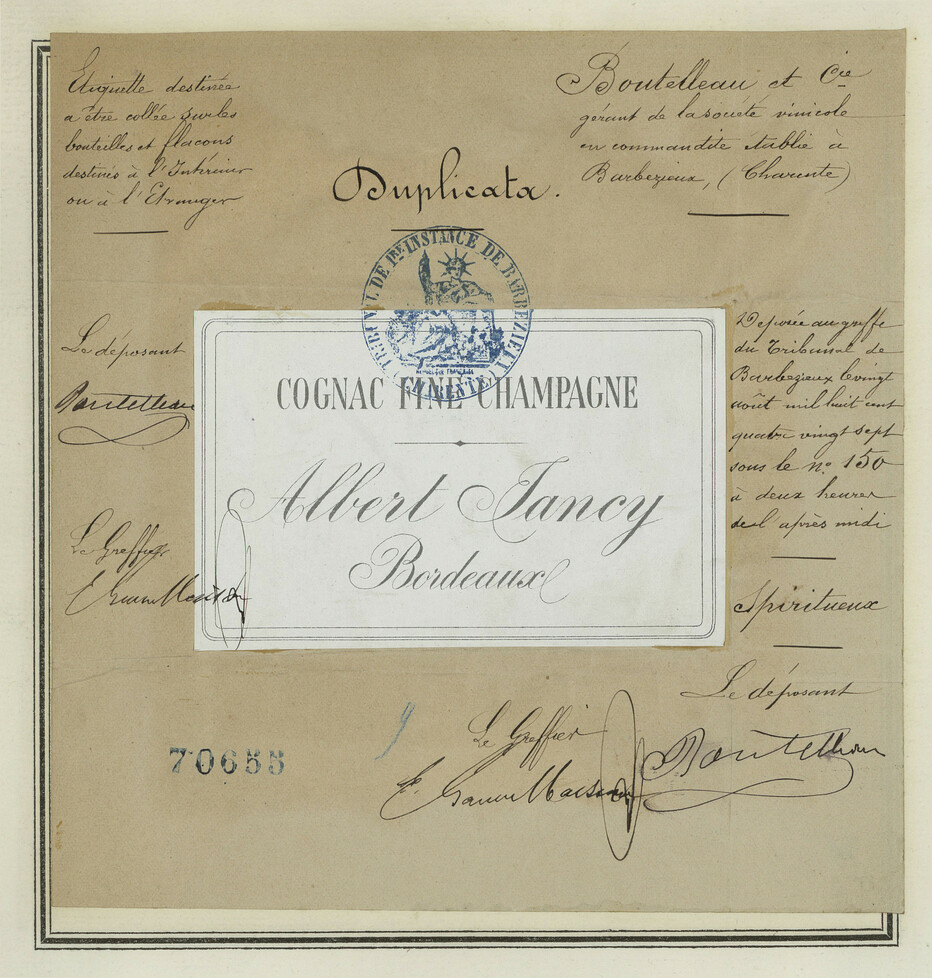 Etiquette destinée
a être collée sur les
bouteilles et flacons
destinés à l'Intérieur
ou à l'Etranger
Duplicata.
Boutelleau et Cie
gérant de la société vinicole
en commandite établie à
Barbezieux, (Charente)
TRIBUNAL DE 1RE INSTANCE DE BARBEZIEUX
(CHARENTE)
Le déposant
Boutelleau
Le Greffier
COGNAC FINE CHAMPAGNE
Albert Jancy
Bordeaux
Déposée au greffe
du Tribunal de
Barbezieux le vingt
août mil huit cent
quatre vingt sept
sous le no 150
à deux heures
de l'après midi
Spiritueux
Le déposant
Boutelleau
Le Greffier
70655